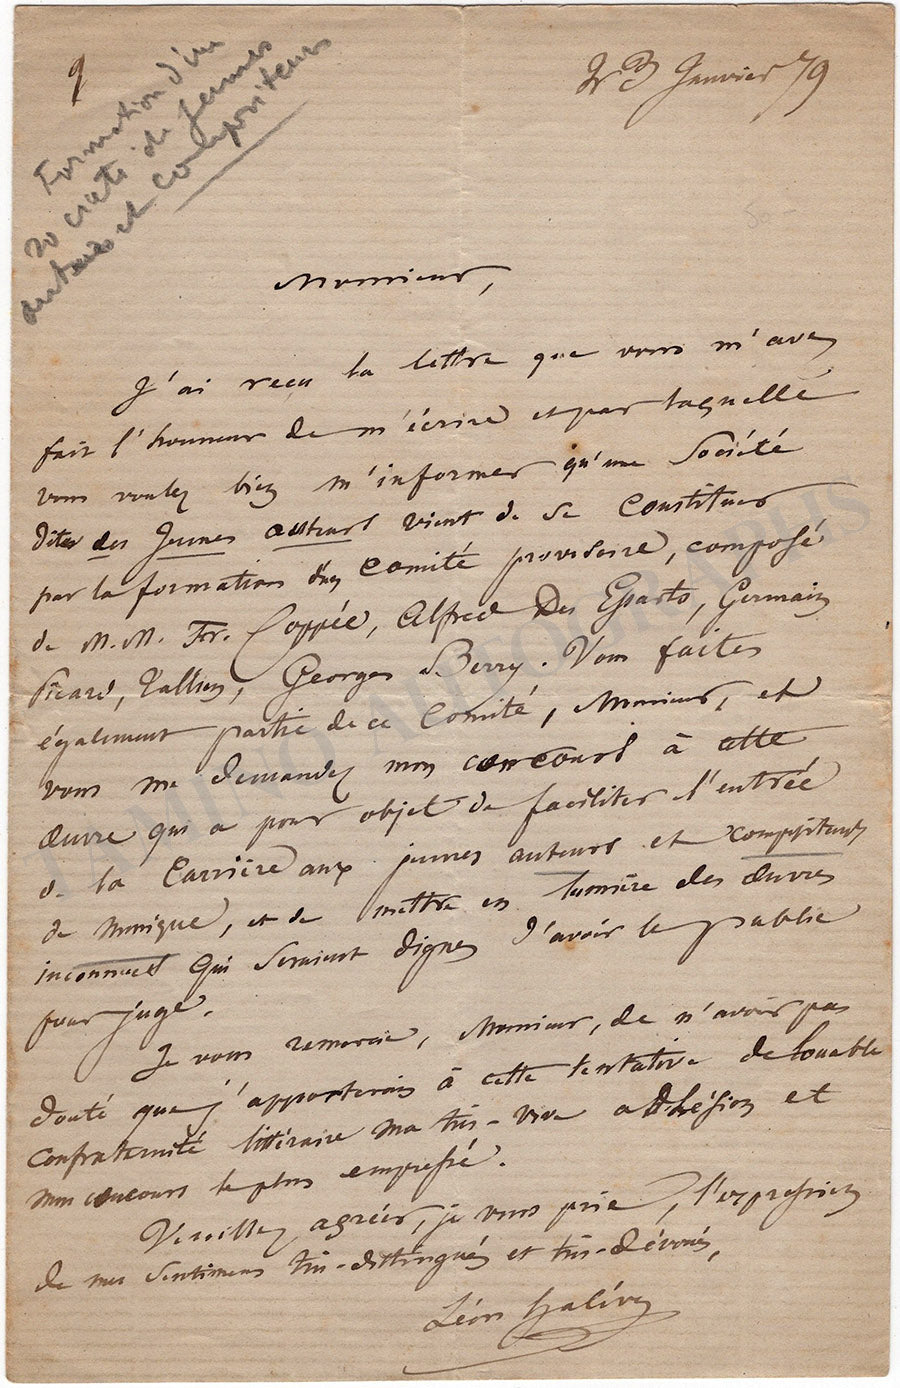 Formation d'une
société de jeunes
auteurs et compositeurs
23 Janvier 79
Monsieur,
J'ai reçu la lettre que vous m'avez
fait l'honneur de m'écrire et par laquelle
vous voulez bien m'informer qu'une Société
dite des Jeunes auteurs vient de se constituer
par la formation d'un Comité provisoire, composé
de M.M. Fr. Coppée, Alfred Des Essarts, Germain
Picard, Tallien, Georges Berry. Vous faites
également partie de ce Comité, Monsieur, et
vous me demandez mon concours à cette
œuvre qui a pour objet de faciliter l'entrée
de la Carrière aux jeunes auteurs et compositeurs
de musique, et de mettre en lumière des œuvres
inconnues qui seraient dignes d'avoir le public
pour juge.
Je vous remercie, Monsieur, de n'avoir pas
douté que j'apporterais à cette tentative de louable
confraternité littéraire ma très-vive adhésion et
mon concours le plus empressé.
Veuillez agréer, je vous prie, l'expression
de mes sentimens très-distingués et très-dévoués,
Léon Halévy
TAMINO AUTOGRAPHS